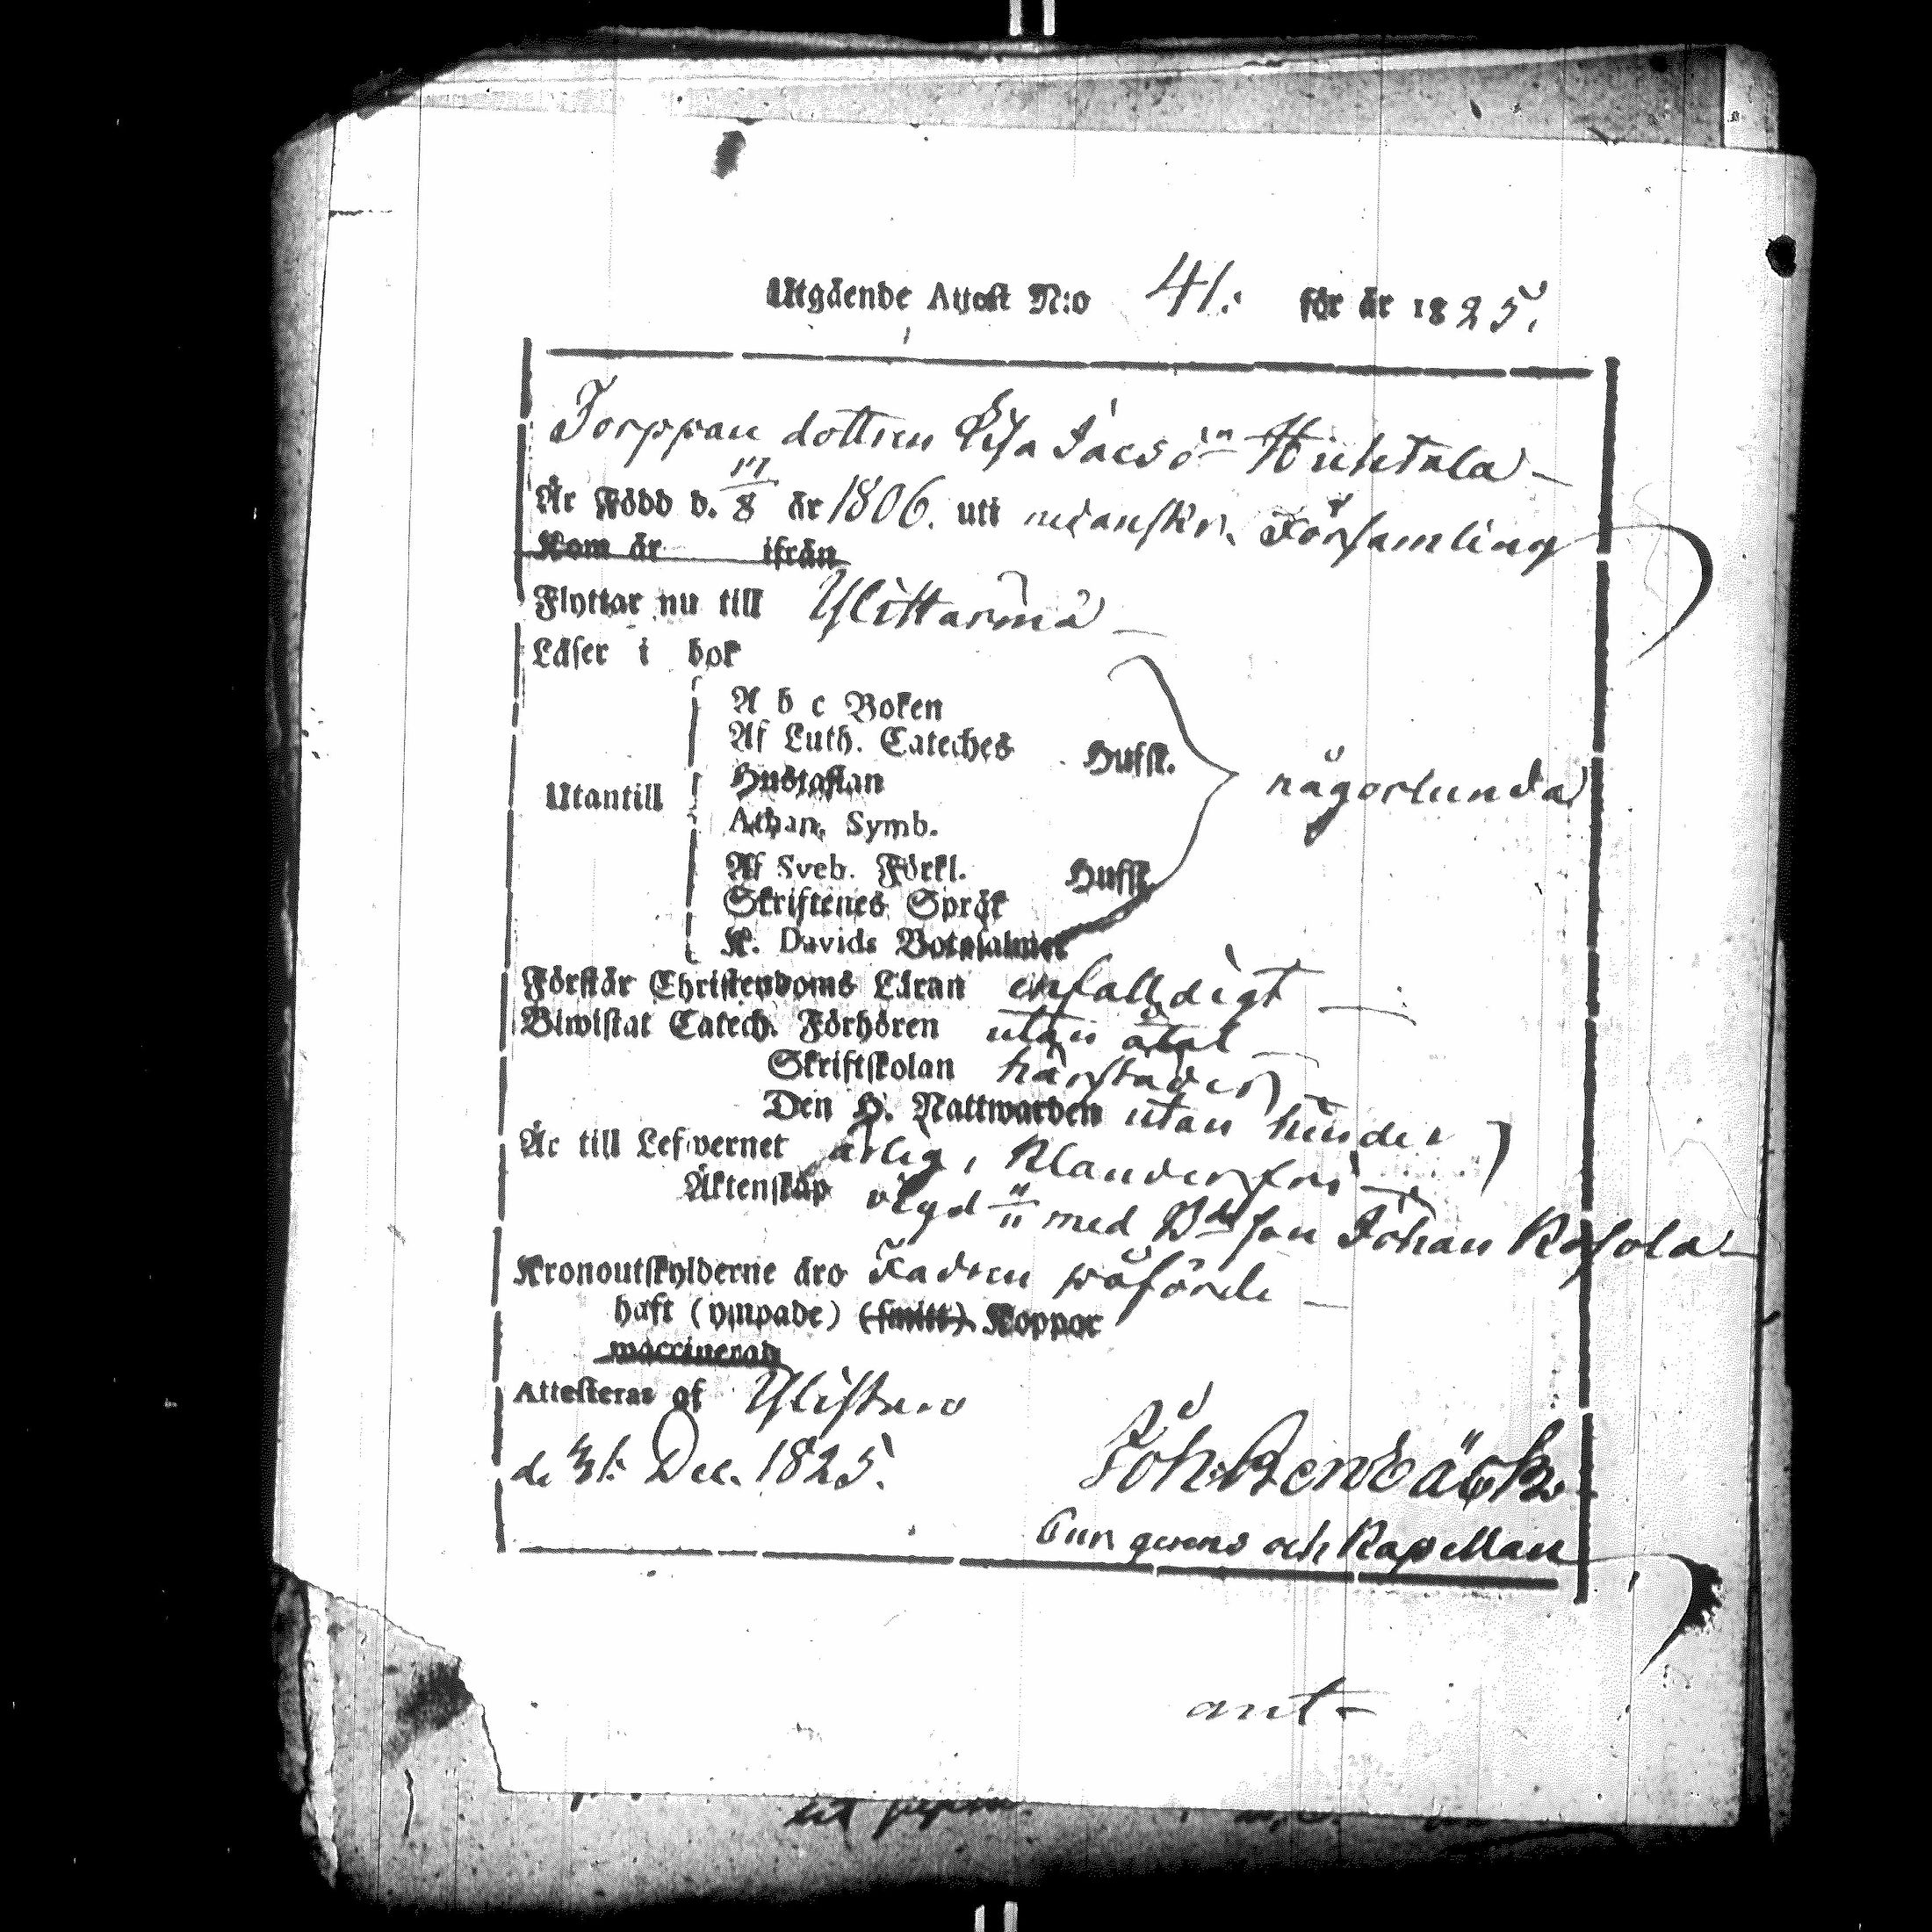 Utgående Attest N:o 41. för år 1825.
Torppan dottren Lisa Jacsdr Huhtala
Är Född d. 17/8 år 1806. uti nedanskr. Församling
Kom år ifrån
Flyttar nu till Ylihärmä
Läser i bok
A b c Boken
Af Luth. Cateches Hufst.
Hustaflan någorlunda
Utantill
Athan. Symb.
Af Sveb. Förkl. Hufst.
Skriftenes Språk
K. Davids Botpsalmer
Förstår Christendoms Läran enfalldigt
Biwistat Catech. Förhören utan åtal
Skriftskolan härstädes
Den H. Nattwarden utan hinder
Är till Lefwernet ärlig, klanderfri
Äktenskap vigd med Bdeson Johan
Kronoutskylderne äro Fadren påförde
haft (ympade) (smitt) Koppor
waccinerad
Attesteras af Ylistaro
d. 31. Dec. 1825. Joh. Renbäck
och Kapellan
ant